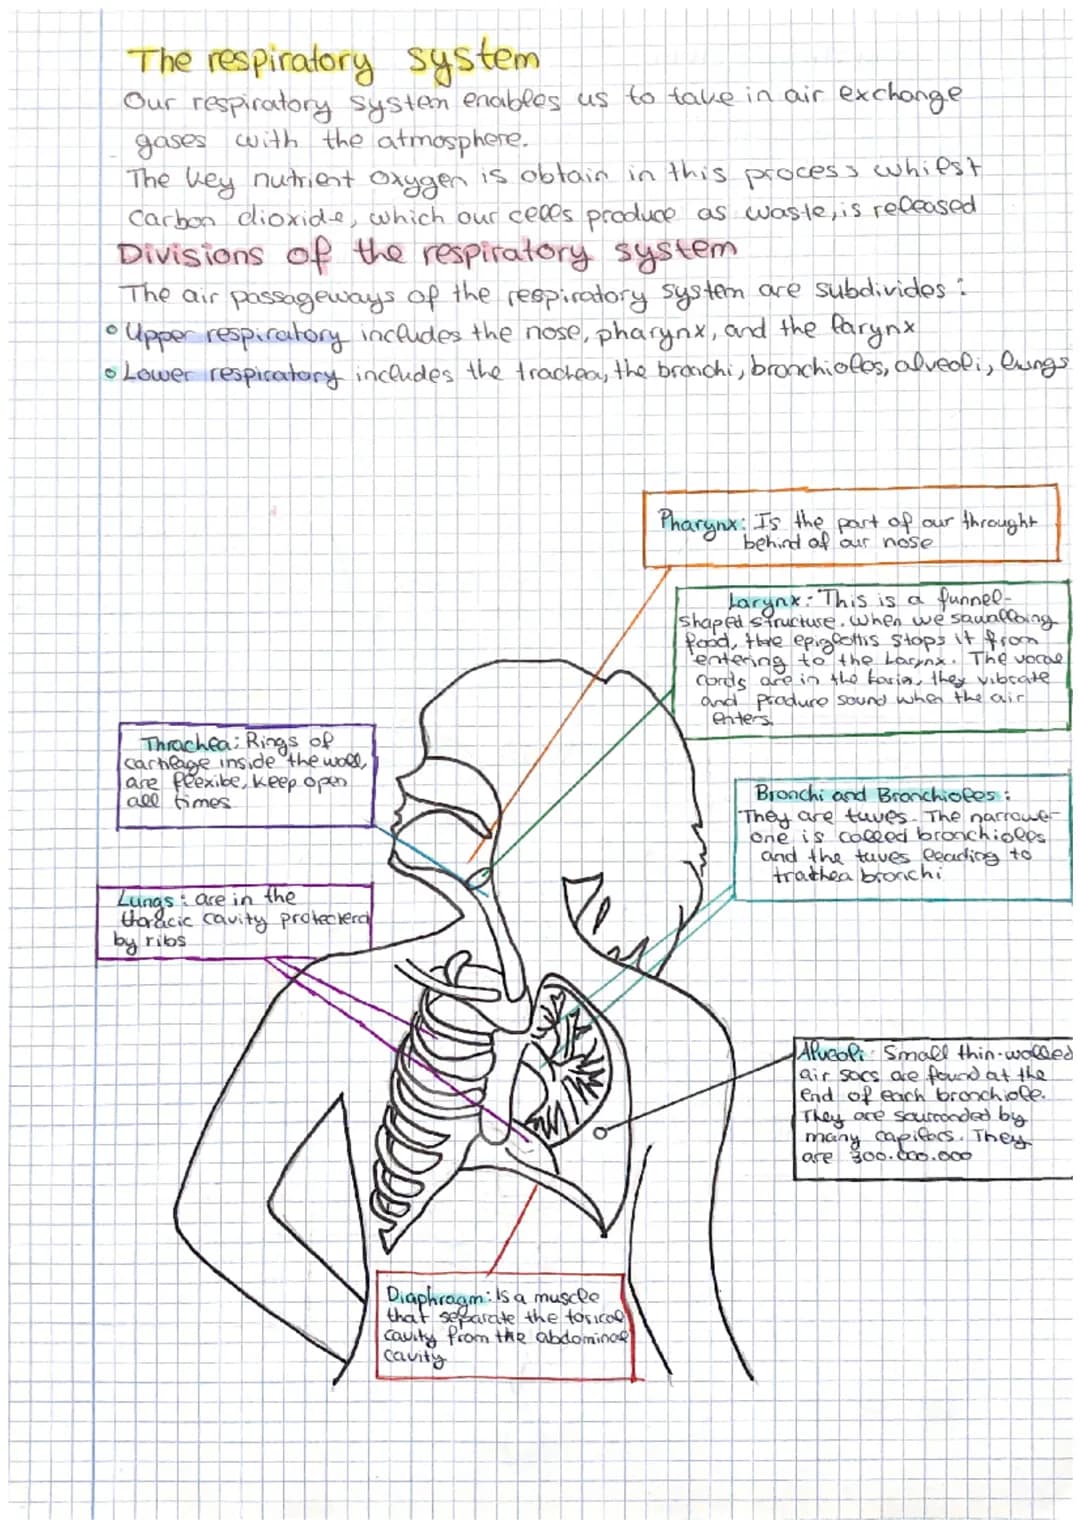 The respiratory system
Our respiratory system enables us to take in air exchange
gases with the atmosphere.
The key nutrient oxygen is obtain in this process whilst
carbon dioxide, which our cells produce as waste, is released
Divisions of the respiratory system
The air passageways of the respiratory system are subdivides:
Upper respiratory includes the nose, pharynx, and the larynx
Lower respiratory includes the trachea, the bronchi, bronchioles, alveoli, lungs
Pharynx: Is the part of our throught
behind of our nose
Larynx: This is a funnel-
shaped structure. When we sawallbing
food, the epiglottis stops it from
entering to the Larynx. The vocal
cords are in the larin, they vibrate
and produre sound when the air
enters.
Thrachea: Rings of
cartleage inside the wall,
are flexibe, keep open
all times
Bronchi and Bronchioles:
They are tuves. The narrower
one is called bronchioles
and the tuves leading to
trathea bronchi
Lungs: are in the
thoracic cavity protecterd
by ribs
Alveoli: Small thin-walled
air sacs are found at the
end of each bronchiole.
They are sourronded by
many capilars. They
are 300.000.000
Diaphragm: Is a muscle
that separate the torical
cavity from the abdominal
cavity